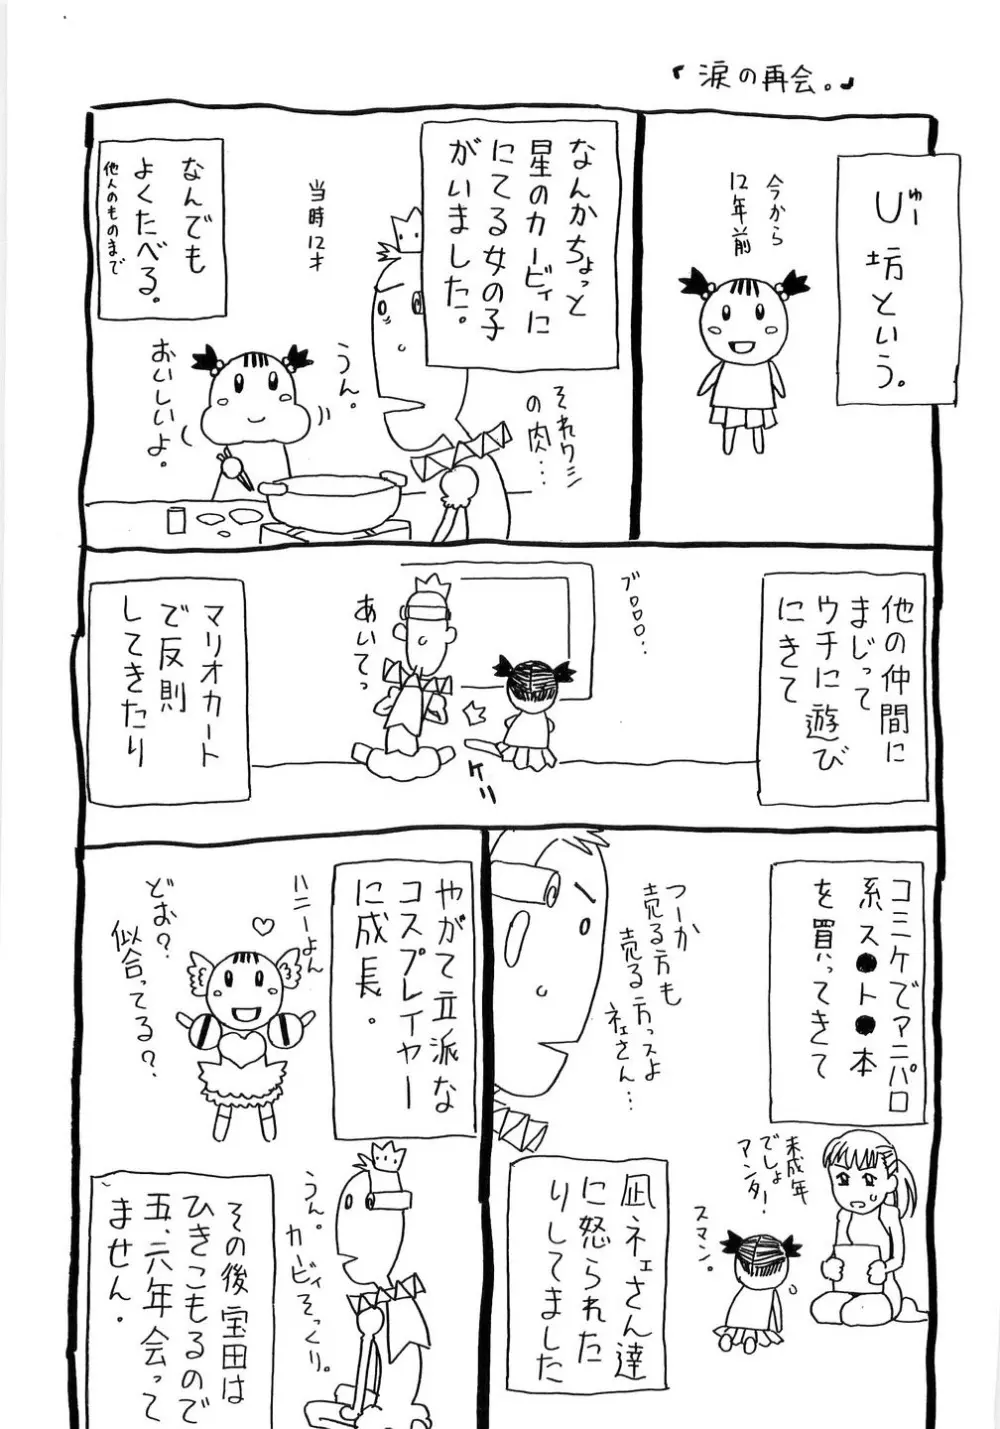 『涙の再会。』
今から
12年前
U坊という。
ゆー
なんかちょっと
星のカービィに
にてる女の子
がいました。
当時12才
それワシ
の肉…
うん。
おいしいよ。
なんでも
よくたべる。
他人のものまで
他の仲間に
まじって
ウチに遊び
にきて
ブロロロ…
あいてっ
ケリ
マリオカート
で反則
してきたり
コミケでアニパロ
系ス●ト●本
を買ってきて
つーか
売る方も
売る方っスよ
ネェさん…
未成年
でしょ
アンター!
スマン。
凪ネェさん達
に怒られた
りしてました
やがて立派な
コスプレイヤー
に成長。
ハニーよん
どお?
似合ってる?
うん。
カービィそっくり。
その後宝田は
ひきこもるので
五、六年会って
ません。